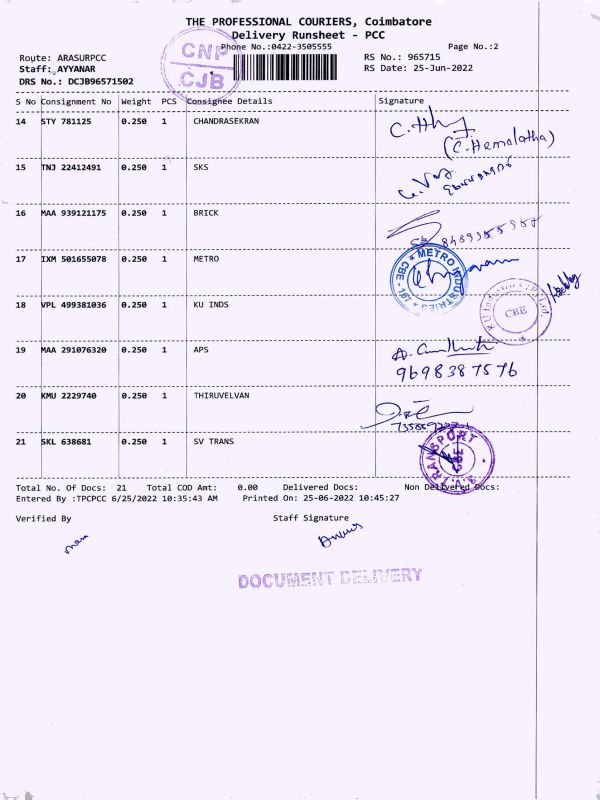 THE PROFESSIONAL COURIERS, Coimbatore
Delivery Runsheet - PCC
Phone No.:0422-3505555
Page No.:2
CNP
CJB
Route: ARASURPCC
Staff: AYYANAR
DRS No.: DCJB96571502
RS No.: 965715
RS Date: 25-Jun-2022
S No Consignment No Weight PCS Consignee Details Signature
14 STY 781125 0.250 1 CHANDRASEKRAN
(C.Hemalatha)
15 TNJ 22412491 0.250 1 SKS
16 MAA 939121175 0.250 1 BRICK
17 IXM 501655078 0.250 1 METRO
METRO INDUSTRIES
CBE
18 VPL 499381036 0.250 1 KU INDS
CBE
19 MAA 291076320 0.250 1 APS
9698387576
20 KMU 2229740 0.250 1 THIRUVELVAN
21 SKL 638681 0.250 1 SV TRANS
S.V. TRANSPORT
CBE
Total No. Of Docs: 21 Total COD Amt: 0.00 Delivered Docs: Non Delivered Docs:
Entered By :TPCPCC 6/25/2022 10:35:43 AM Printed On: 25-06-2022 10:45:27
Verified By Staff Signature
DOCUMENT DELIVERY